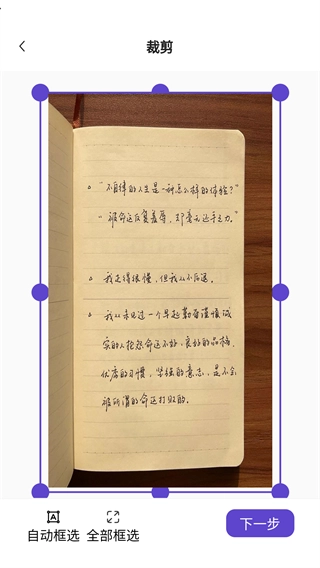 裁剪
"不自律的人生是一种怎么样的体验?"
"被命运反复羞辱,却毫无还手之力。"
我走得很慢,但我从不后退。
我从未见过一个早起勤奋谨慎诚
实的人抱怨命运不好,良好的品格,
优良的习惯,坚强的意志,是不会
被所谓的命运打败的。
自动框选 全部框选 下一步